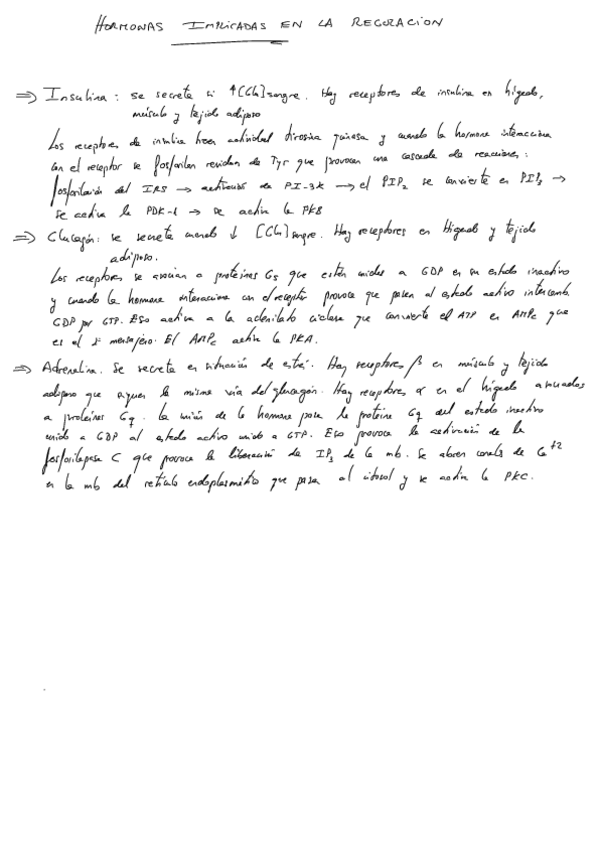 HORMONAS IMPLICADAS EN LA REGULACION
⇒ Insulina: se secreta si ↑[Glu]sangre. Hay receptores de insulina en hígado,
músculo y tejido adiposo
Los receptores de insulina tienen actividad tirosina quinasa y cuando la hormona interacciona
con el receptor se fosforilan residuos de Tyr que provocan una cascada de reacciones:
fosforilación del IRS → activación de PI-3K → el PIP2 se convierte en PIP3 →
se activa la PDK-1 → se activa la PKB
⇒ Glucagón: se secreta cuando ↓ [Glu]sangre. Hay receptores en Hígado y tejido
adiposo.
Los receptores se asocian a proteínas Gs que están unidas a GDP en su estado inactivo
y cuando la hormona interacciona con el receptor provoca que pasen al estado activo intercamb.
GDP por GTP. Eso activa a la adenilato ciclasa que convierte el ATP en AMPc que
es el 2º mensajero. El AMPc activa la PKA.
⇒ Adrenalina. Se secreta en situación de estrés. Hay receptores β en músculo y tejido
adiposo que siguen la misma vía del glucagón. Hay receptores α en el hígado asociados
a proteínas Gq. La unión de la hormona pasa la proteína Gq del estado inactivo
unido a GDP al estado activo unido a GTP. Eso provoca la activación de la
fosfolipasa C que provoca la liberación de IP3 de la mb. Se abren canales de Ca+2
en la mb del retículo endoplasmático que pasan al citosol y se activa la PKC.